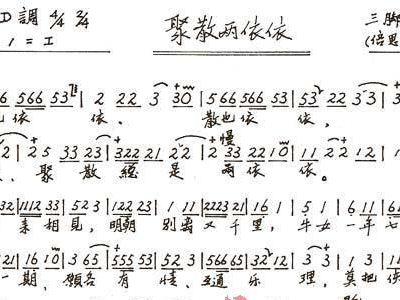 D調 4/4 2/4 聚散兩依依 三脚
1 = I (倍思
6 566 53 | 2 22 3 30 | 566 566 53 | 53 22 3 3 |
也依 依. 散也依 依,
慢
2 | 2 5 33 23 | 322 21 2 2 | 2 33 22 10 | 11 22 12 |
聚 散 總 是 兩 依 依.
32 | 1112 33 | 52 3 | 122 23 | 1 11 | 2223 21 | 16 1 | 5 3 | 6 11 | 61
素 相見, 明朝 別離 又 千里, 牛女 一年 七
21 | 16 10 | 3 65 | 555 53 | 52 3 | 23 5 | 665 65 | 32 12 | 3 3 | 1 3
一期, 願各 有 情, 互通 乐 理, 莫把